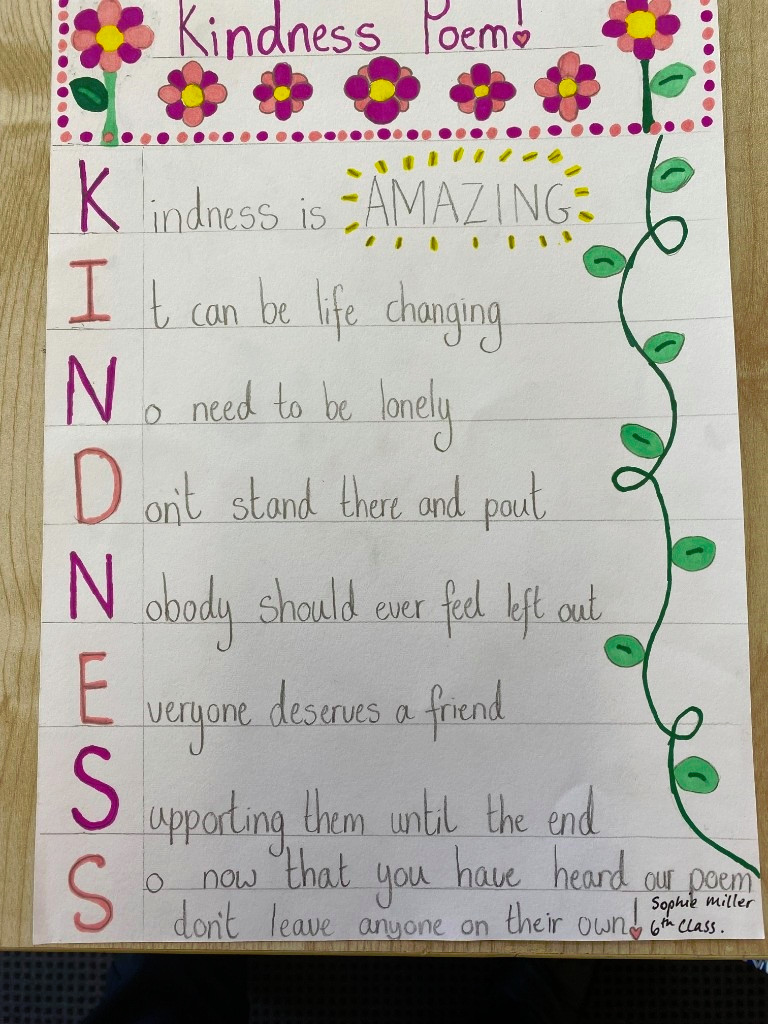 Kindness Poem!
Kindness is AMAZING
It can be life changing
No need to be lonely
Don't stand there and pout
Nobody should ever feel left out
Everyone deserves a friend
Supporting them until the end
So now that you have heard our poem
don't leave anyone on their own!
Sophie Miller
6th Class.